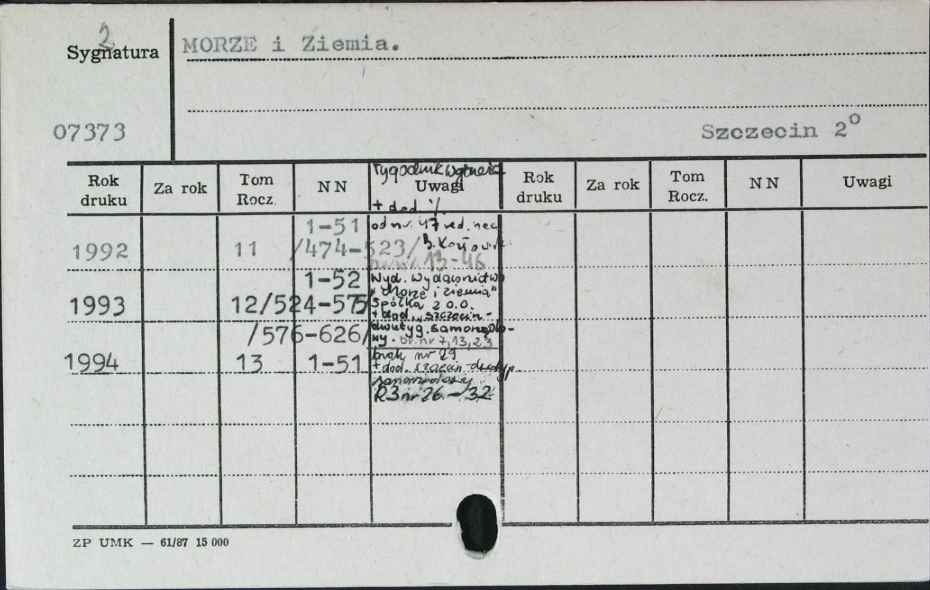 2
Sygnatura
MORZE i Ziemia.
07373
Szczecin 2°
Rok druku
Za rok
Tom Rocz.
NN
Tygodnik
Uwagi
Rok druku
Za rok
Tom Rocz.
NN
Uwagi
+ dod.
1-51
od nr. 47 red. nacz
1992 11 /474-523/
13-46
1-52
Wyd. Wydawnictwo
"Morze i Ziemia"
1993 12/524-575/
Spółka z o.o.
+ dod. "szczecin-
/576-626/
dwutyg. samorządo-
wy. br. nr 7, 13, 23
brak nr 29
1994 13 1-51
+ dod.
R3 nr 26-32
ZP UMK — 61/87 15 000